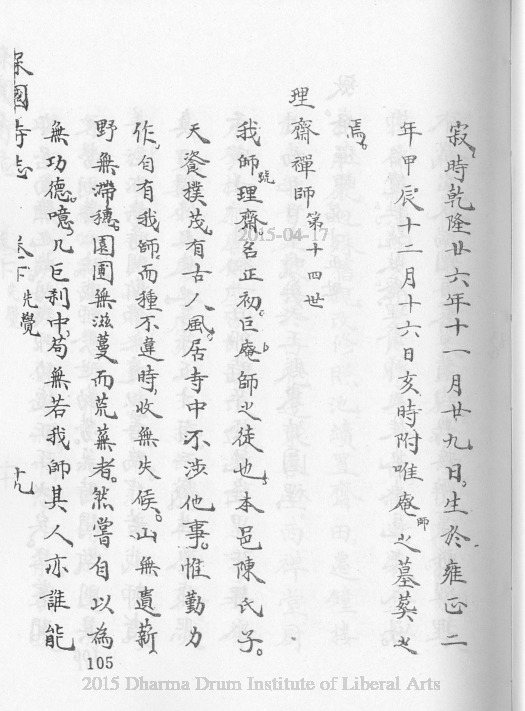 寂時乾隆廿六年十一月廿九日。生於雍正二
年甲辰十二月十六日亥時附唯庵師之墓葬之
焉。
理齋禪師第十四世
我師號理齋。名正初。巨庵師之徒也。本邑陳氏子。
天資撲茂。有古人風。居寺中不涉他事。惟勤力
作。自有我師。而種不違時。收無失候。山無遺薪
野無滯穗。園圃無滋蔓而荒蕪者。然嘗自以為
無功德。噫。凡巨剎中。苟無若我師其人亦誰能
保國寺志 卷下 先覺 十九
105
2015-04-17
2015 Dharma Drum Institute of Liberal Arts